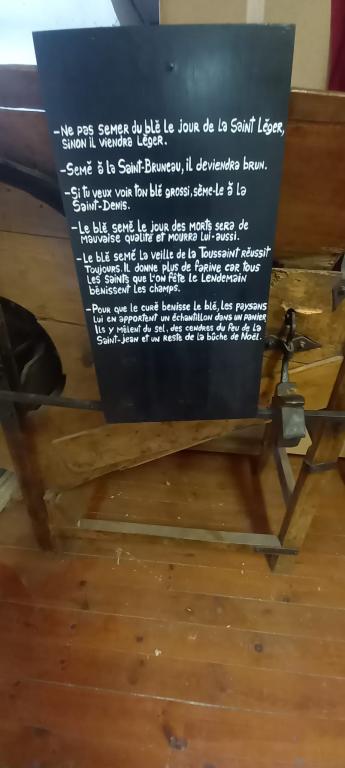 - Ne pas semer du blé le jour de la Saint Léger,
sinon il viendra léger.
- Semé à la Saint-Bruneau, il deviendra brun.
- Si tu veux voir ton blé grossi, sème-le à la
Saint-Denis.
- Le blé semé le jour des morts sera de
mauvaise qualité et mourra lui-aussi.
- Le blé semé la veille de la Toussaint réussit
toujours. Il donne plus de farine car tous
les saints que l'on fête le lendemain
bénissent les champs.
- Pour que le curé benisse le blé, les paysans
lui en apportent un échantillon dans un panier.
Ils y mêlent du sel, des cendres du feu de la
Saint-Jean et un reste de la bûche de Noël.